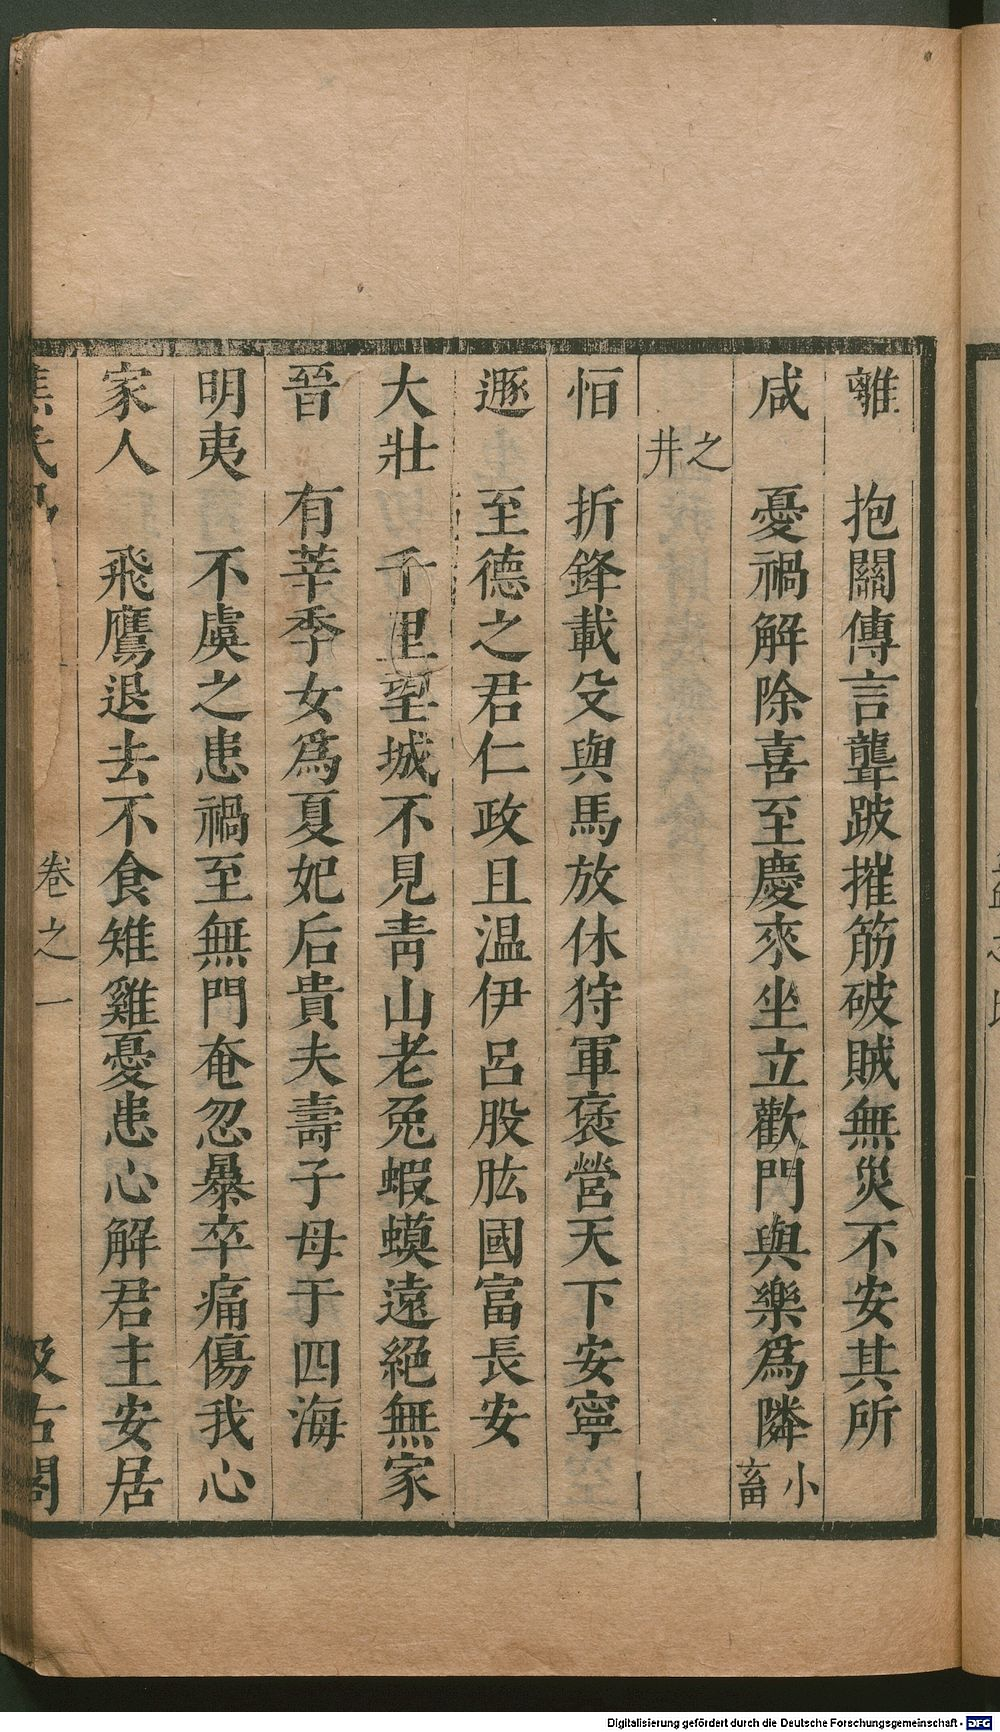 離　抱關傳言聾跛摧筋破賊無災不安其所
咸　憂禍解除喜至慶來坐立歡門與樂爲隣小畜
之井
恒　折鋒載殳輿馬放休狩軍褒營天下安寧
遯　至德之君仁政且温伊呂股肱國富長安
大壯　千里望城不見青山老兔蝦蟆遠絕無家
晉　有莘季女爲夏妃后貴夫壽子母于四海
明夷　不虞之患禍至無門奄忽暴卒痛傷我心
家人　飛鷹退去不食雉雞憂患心解君主安居
卷之一
Digitalisierung gefördert durch die Deutsche Forschungsgemeinschaft - DFG